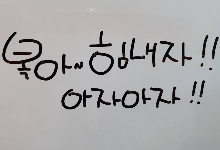 으아~힘내자!!
아자아자!!